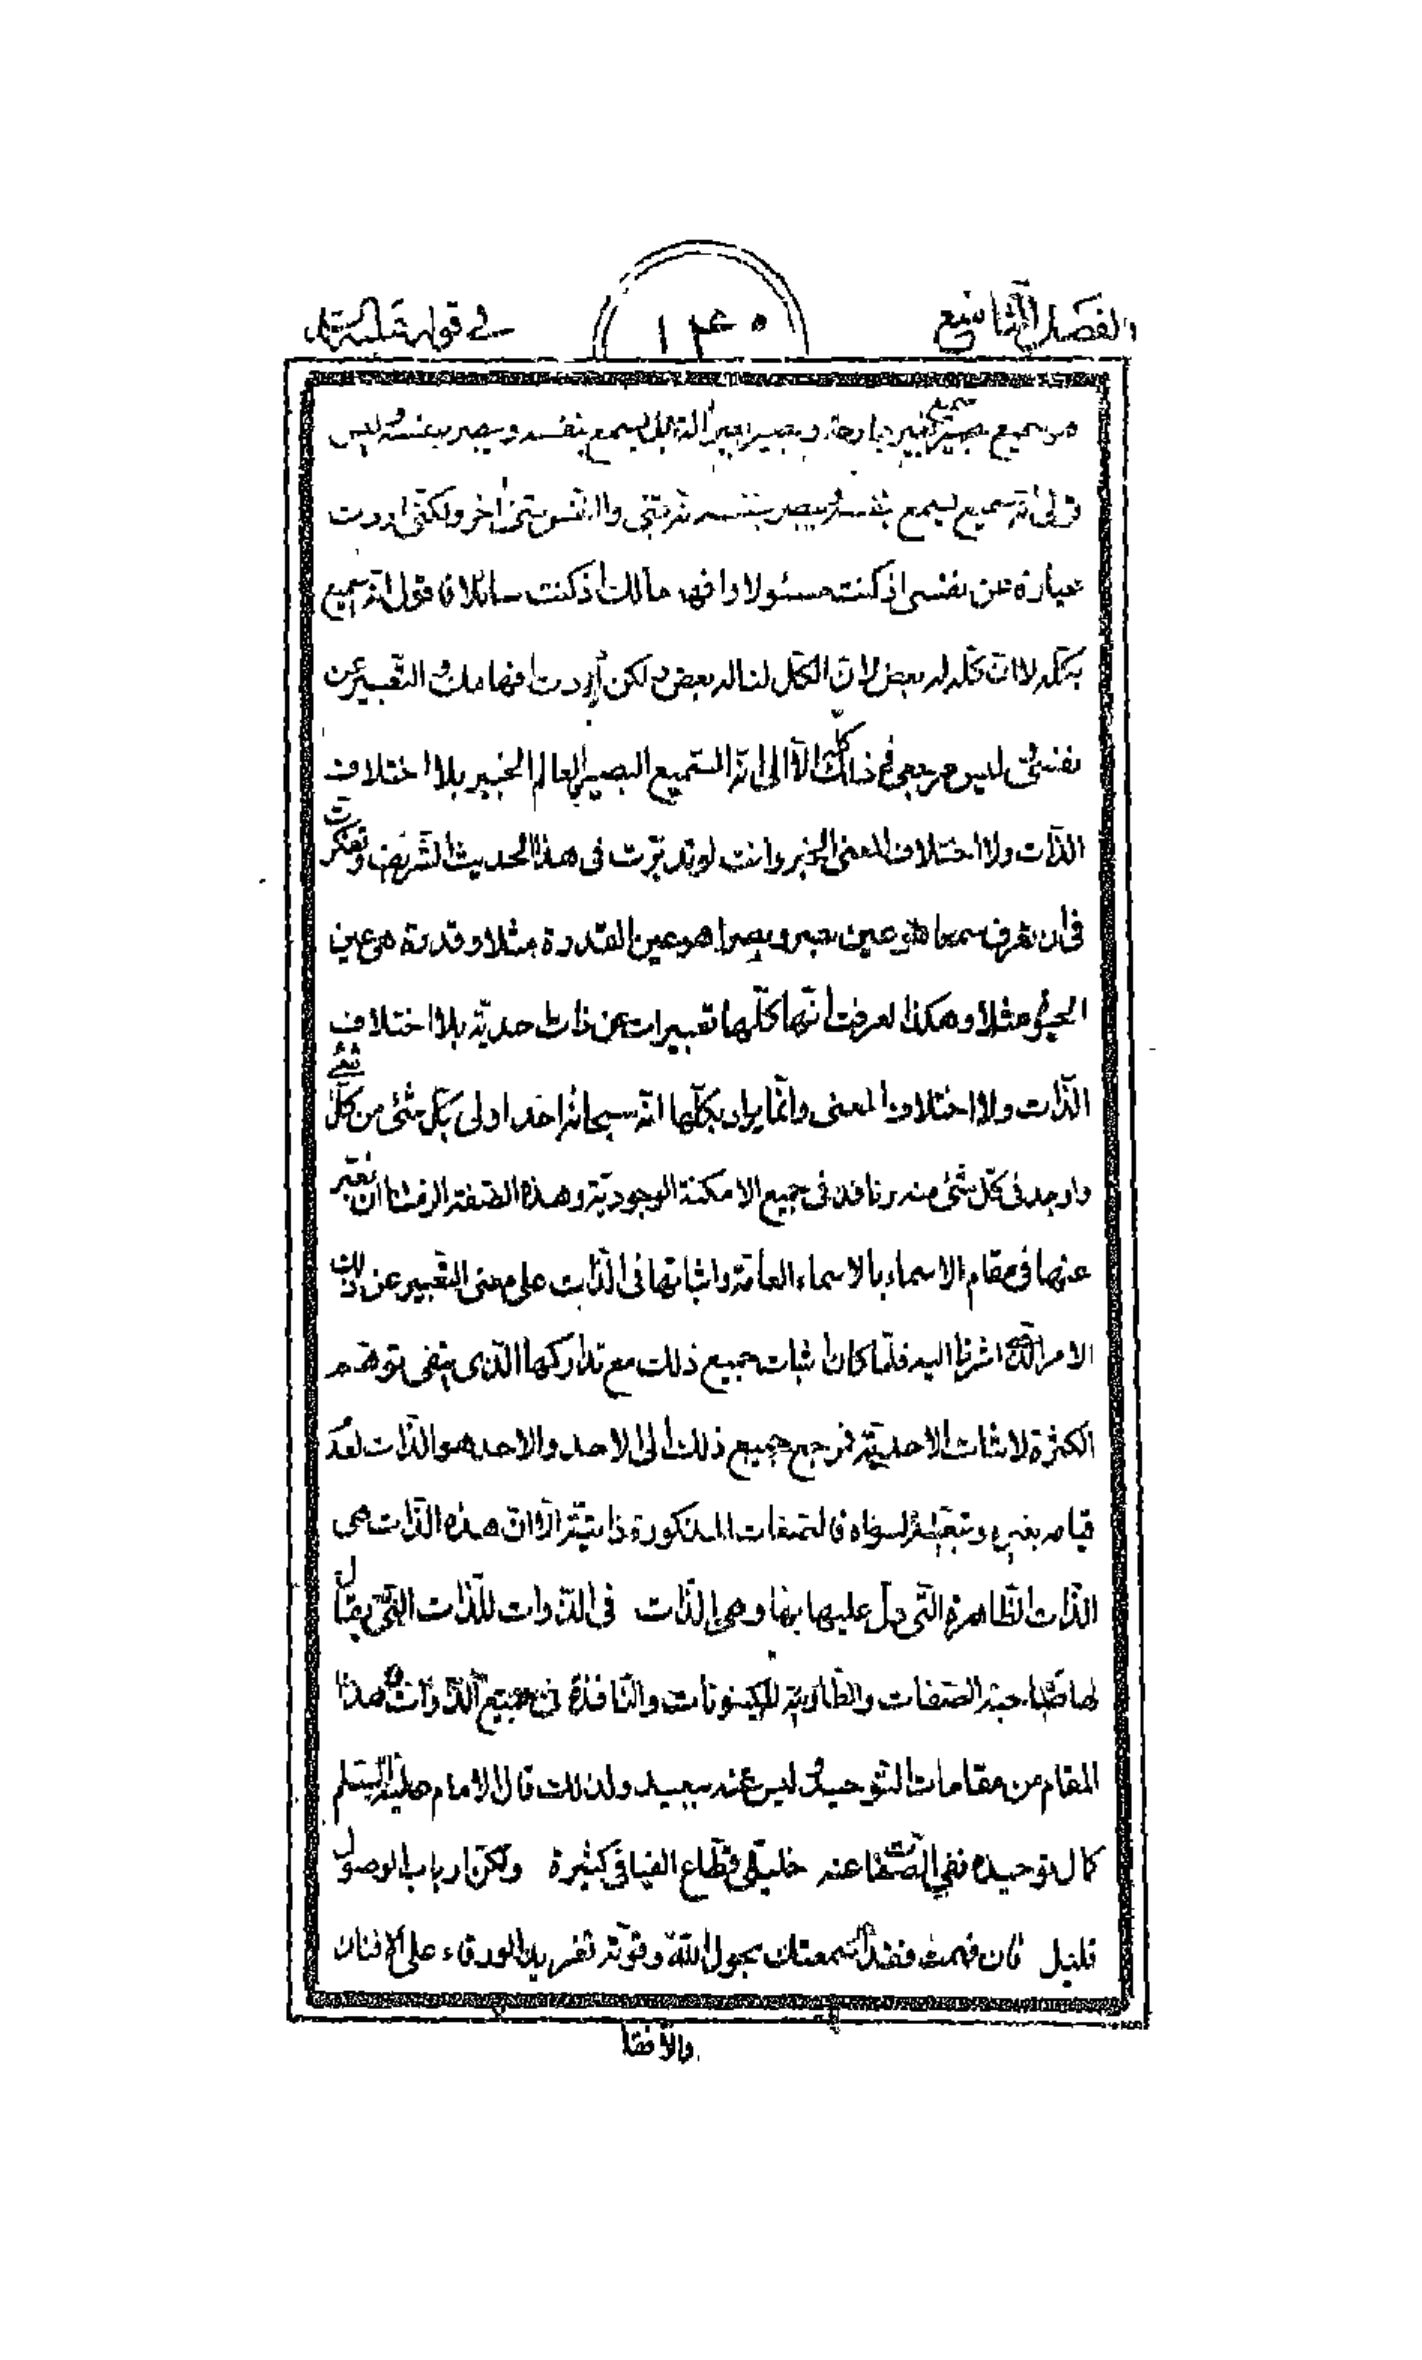 الفصل التاسع
١٣٤٥
في قوله عليه السلام
هو سميع بصير سميع بغير جارحة وبصير بغير آلة بل يسمع بنفسه ويبصر بنفسه ليس
قولى انه سميع يسمع بنفسه ويبصر بنفسه انه شئ والنفس شئ اخر ولكنى اردت
عبارة عن نفسى اذ كنت مسئولا وافهاما لك اذ كنت سائلا فاقول انه سميع
بكله لا ان كله له بعض لان الكل لنا له بعض ولكن اردت افهامك والتعبير عن
نفسى وليس مرجعى فى ذلك كله الا الى انه السميع البصير العالم الخبير بلا اختلاف
الذات ولا اختلاف المعنى الخبر وانت لو تدبرت فى هذا الحديث الشريف وتفكرت
فى ان تعرف سمعا هو عين بصر وبصرا هو عين القدرة مثلا وقدرة هى عين
الحيوة مثلا وهكذا لعرفت انها كلها تعبيرات عن ذات احدية بلا اختلاف
الذات ولا اختلاف المعنى وانما يراد بكلها انه سبحانه احد اولى بكل شئ من كل شئ
واوجد فى كل شئ منه ونافذ فى جميع الامكنة الوجودية وهذه الصفة الزمتنا ان نعبر
عنها فى مقام الاسماء بالاسماء العامة واثباتها فى الذات على معنى التعبير عن ذلك
الامر الذى اشرنا اليه فلما كان اثبات جميع ذلك مع تداركها الذى ينفى توهم
الكثرة لاثبات الاحدية فرجع جميع ذلك الى الاحد والاحد هو الذات لعدم
قيامه بغيره وتبعيته لسواه فالصفات المذكورة ذاتية الا ان هذه الذات هى
الذات الظاهرة التى دل عليها بها وهى الذات فى الذوات للذات التى يقال
لها صاحبة الصفات والطاوية للكينونات والنافذة فى جميع الذوات وهذا
المقام من مقامات التوحيد ليس عنه ببعيد ولذلك قال الامام عليه السلم
كمال توحيده نفي الصفات عنه خليلى قطاع الفيافى كثيرة ولكن ارباب الوصول
قليل فان فهمت فقد اسمعتك بحول الله وقوته تغريد الورقاء على الافنان
والافقا